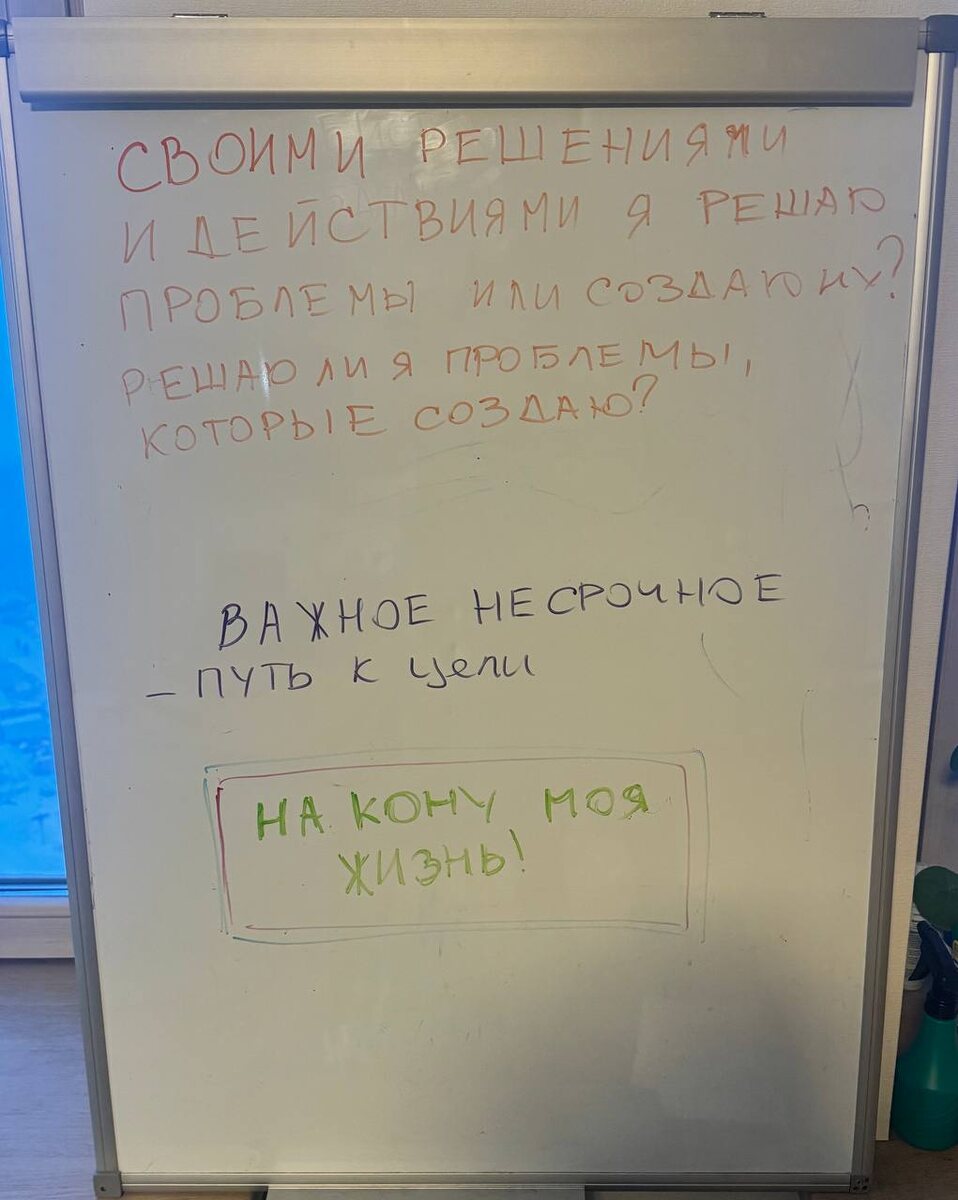 СВОИМИ РЕШЕНИЯМИ
И ДЕЙСТВИЯМИ Я РЕШАЮ
ПРОБЛЕМЫ ИЛИ СОЗДАЮ ИХ?
РЕШАЮ ЛИ Я ПРОБЛЕМЫ,
КОТОРЫЕ СОЗДАЮ?
ВАЖНОЕ НЕСРОЧНОЕ
– ПУТЬ К ЦЕЛИ
НА КОНУ МОЯ
ЖИЗНЬ!